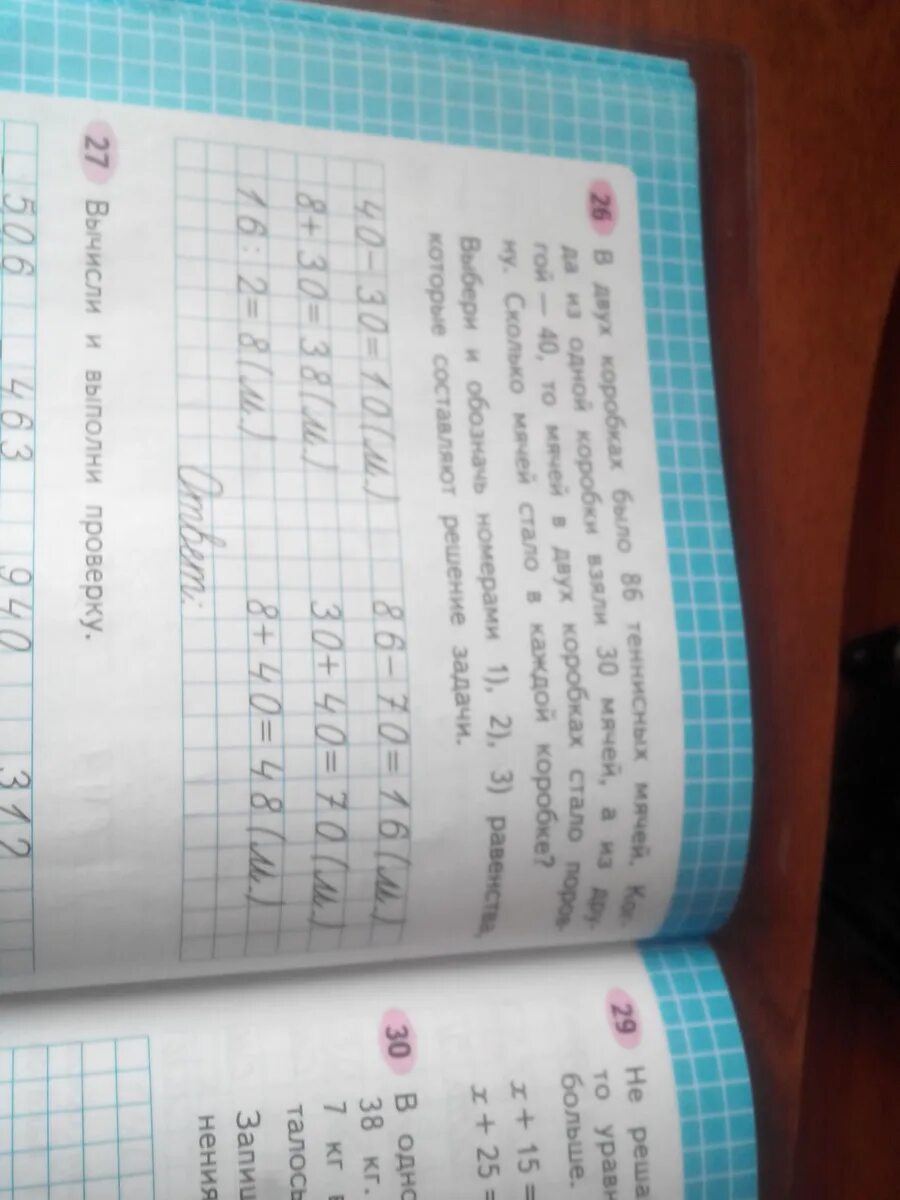 26 В двух коробках было 86 теннисных мячей. Ког-
да из одной коробки взяли 30 мячей, а из дру-
гой — 40, то мячей в двух коробках стало поров-
ну. Сколько мячей стало в каждой коробке?
Выбери и обозначь номерами 1), 2), 3) равенства,
которые составляют решение задачи.
40 − 30 = 10 (м.) 86 − 70 = 16 (м.)
8 + 30 = 38 (м.) 30 + 40 = 70 (м.)
16 : 2 = 8 (м.) 8 + 40 = 48 (м.)
Ответ:
27 Вычисли и выполни проверку.
506 463 940 312
29 Не реша
то урав
больше.
x + 15 =
x + 25 =
30 В одно
38 кг.
7 кг
талось
Запиш
нения